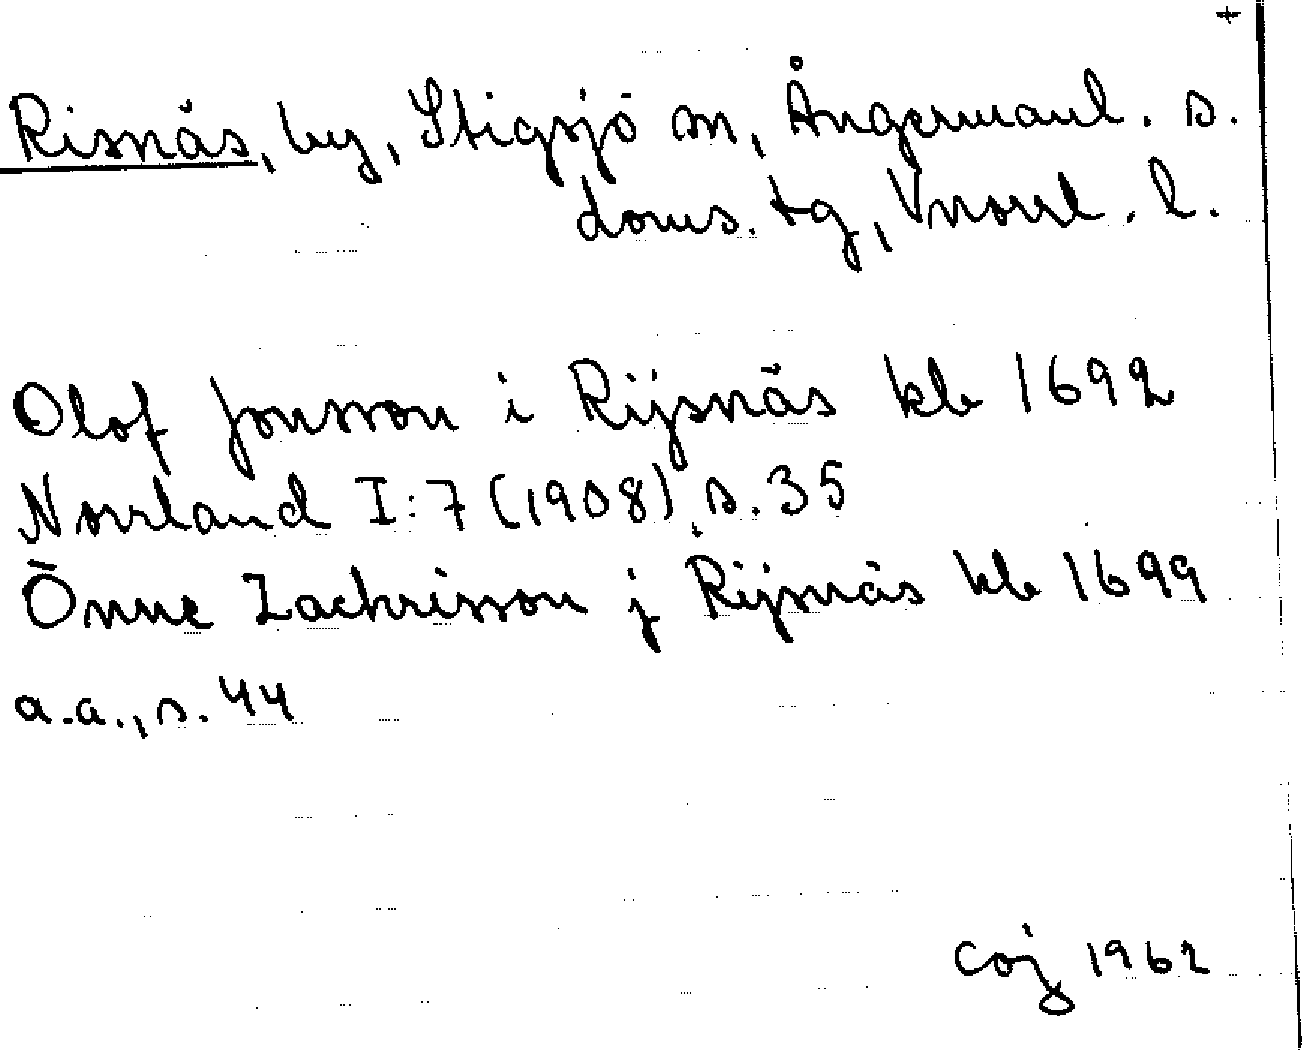 +
Risnäs, by, Stigsjö sn, Ångermanl. s.
doms. tg, Vnorrl. l.
Olof Jonsson i Rijsnäs kb 1692
Norrland I:7 (1908), s. 35
Önne Zachrisson j Rijsnäs kb 1699
a.a., s. 44
Coj 1962